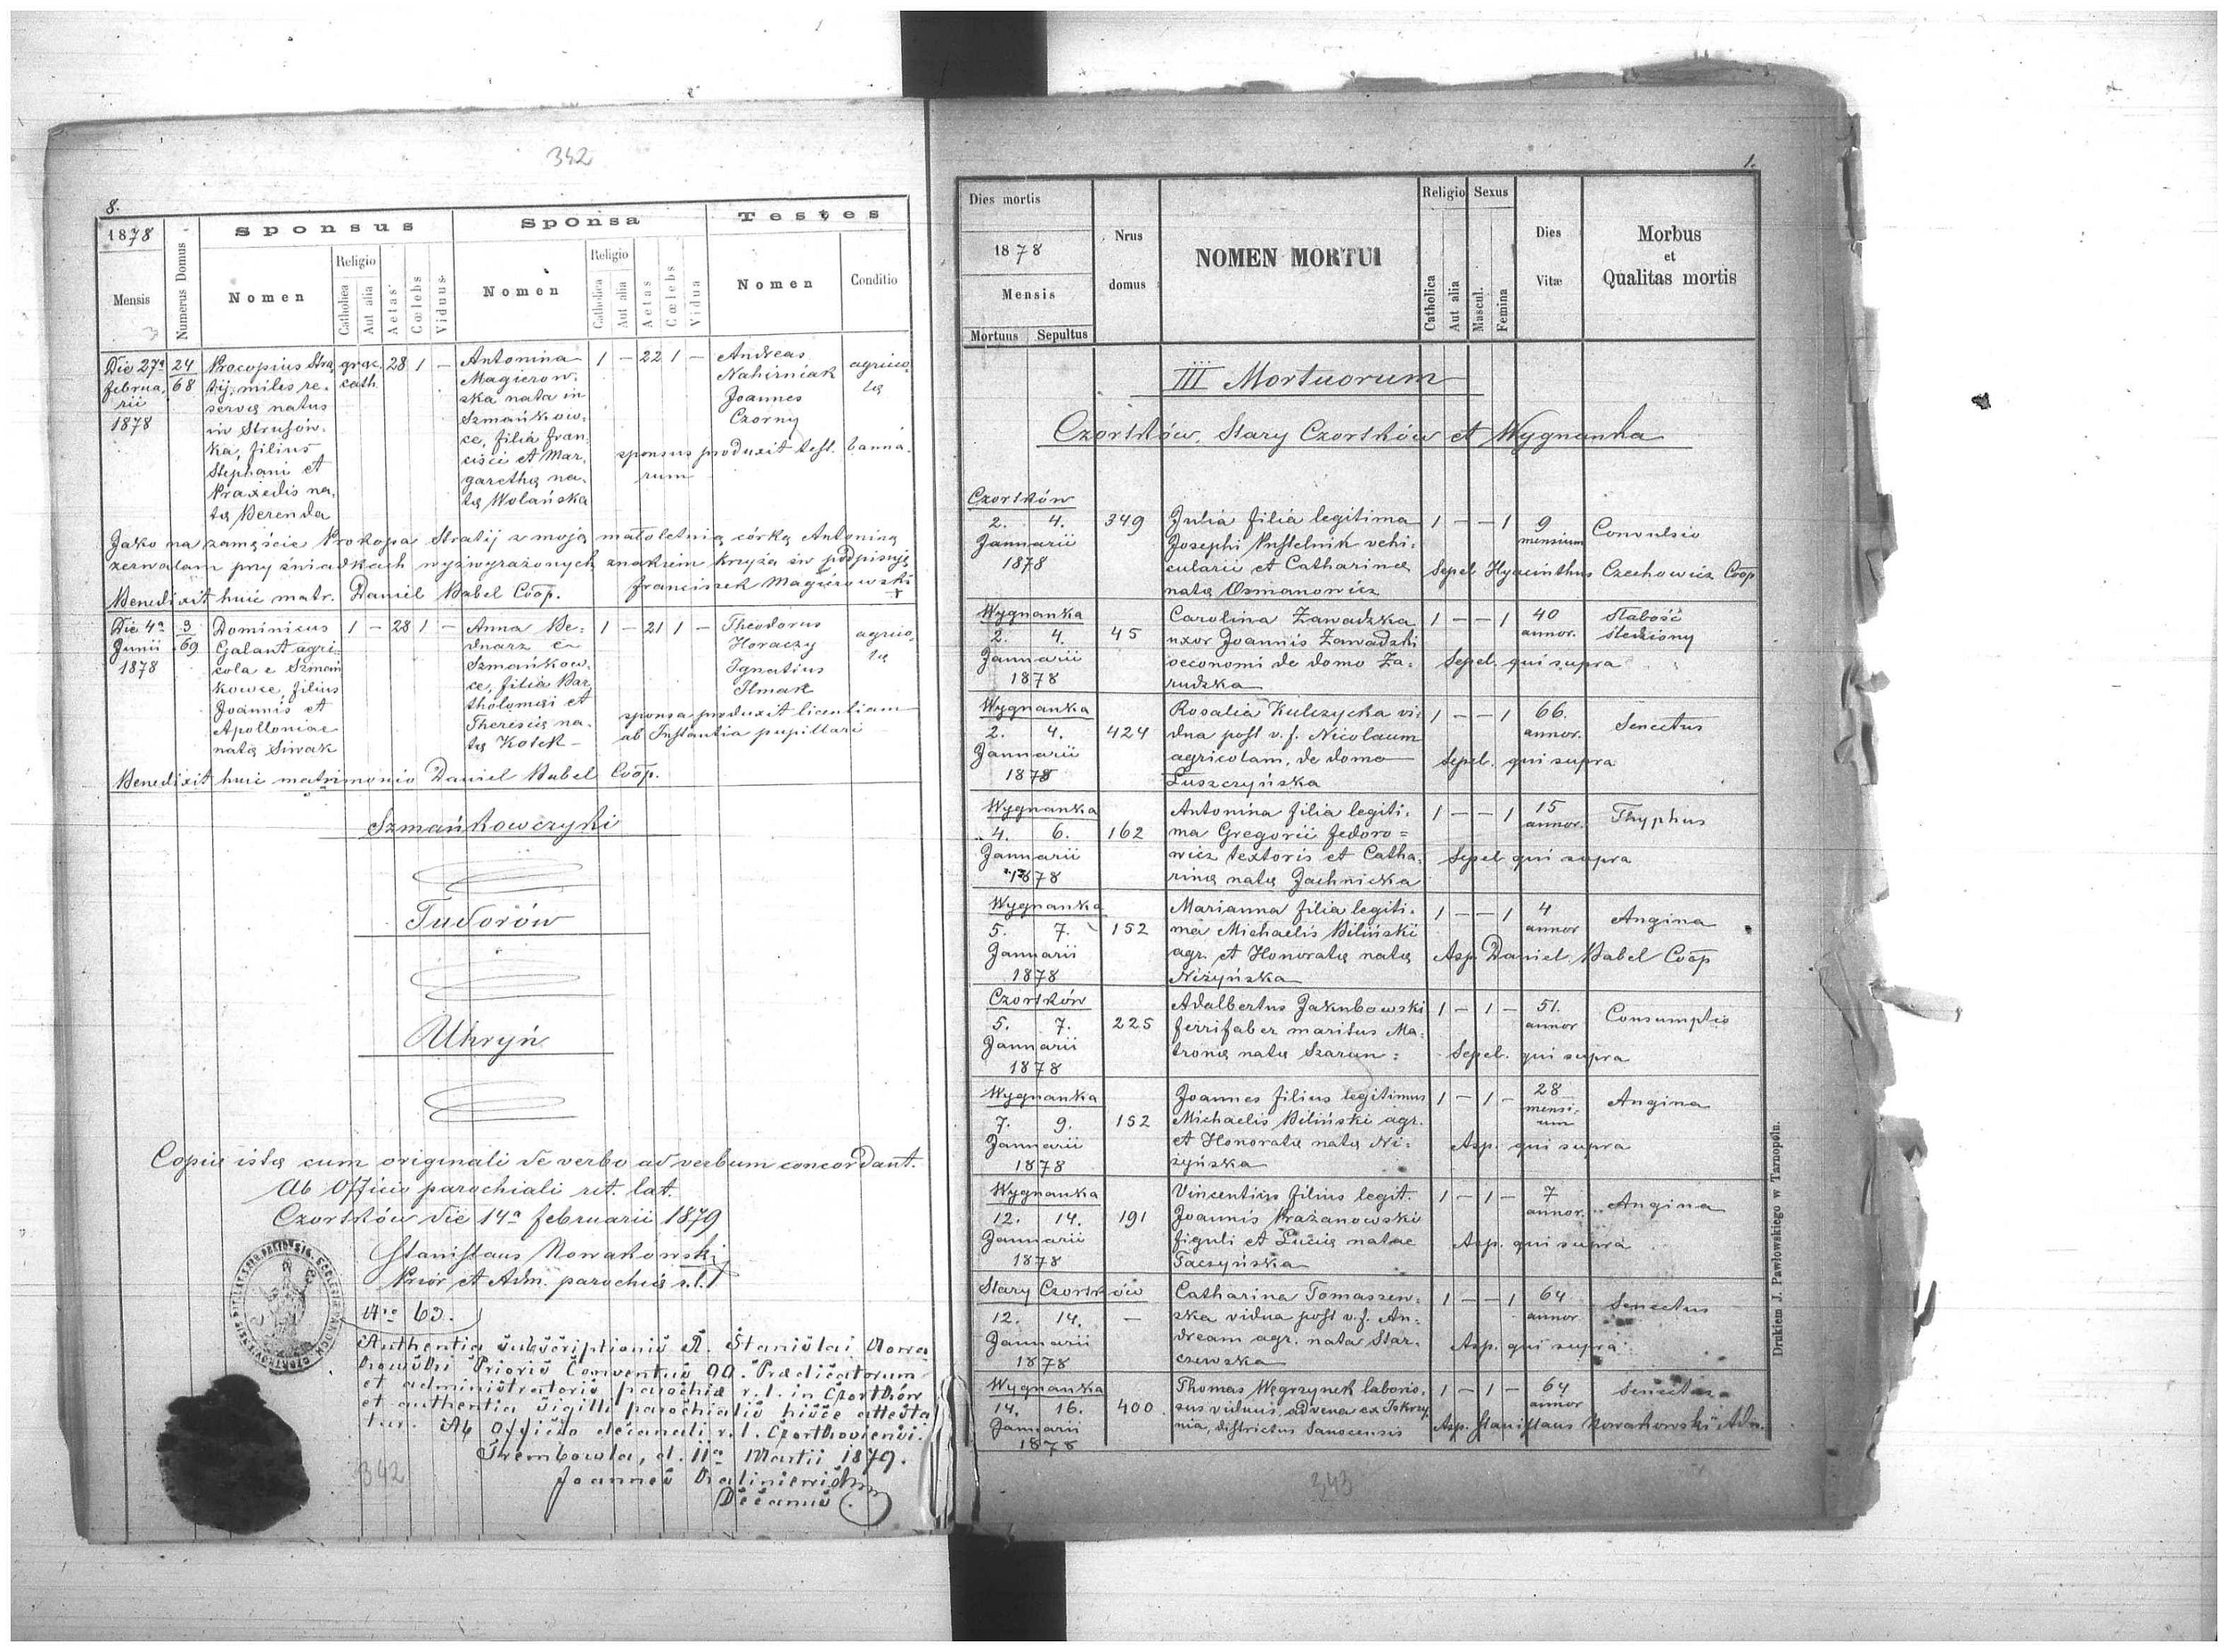 342
8.
1878
Mensis
Numerus Domus
Sponsus
Nomen
Religio
Catholica
Aut alia
Aetas
Cœlebs
Viduus
Sponsa
Nomen
Religio
Catholica
Aut alia
Aetas
Cœlebs
Vidua
Testes
Nomen
Conditio
Die 27a
februa.
rii
1878
24
68
Procopius Stra
tij, miles re.
servæ natus
in Strusów.
ka, filius
Stephani et
Praxedis na.
tæ Berenda
græc.
cath.
28 1 -
Antonina
Magierow.
ska nata in
Szmańkow.
ce, filia fran.
cisci et Mar.
garethæ na.
tæ Wolańska
1 - 22 1 -
Andreas
Nahirniak
Joannes
Czorny
agrico.
læ
sponsus produxit test. banno.
rum
Jako na zamęście Prokopa Stratij z moją małoletnią córką Antoniną
zezwalam przy świadkach wyżwyrażonych znakiem krzyża św podpisuję
Franciszek Magierowski
+
Benedixit huic matr. Daniel Babel Coop.
Die 4a
Junii
1878
3
69
Dominicus
Galant agri.
cola e Szmań
kowce, filius
Joannis et
Apolloniae
natæ Siwak
1 - 28 1 -
Anna Be.
dnarz e
Szmańkow.
ce, filia Bar
tholomæi et
Theresiæ na.
tæ Kotek
1 - 21 1 -
Theodorus
Horaczy
Ignatius
Ilmak
agrico.
læ
sponsa produxit licentiam
ab Instantia pupillari
Benedixit huic matrimonio Daniel Babel Coop.
Szmańkowczyki
Tudorów
Uhryń
Copiæ istæ cum originali de verbo ad verbum concordant.
Ab Officio parochiali rit. lat.
Czortków die 14a februarii 1879
Stanislaus Nowakowski
Prior et Adm. parochiæ r. l.
No 63.
Authentia subscriptionis R. Stanislai Nowa
kowski Prioris Conventus OO. Prædicatorum
et administratoris parochiæ r. l. in Czortków
et authentia sigilli parochialis hisce attesta
tur. Ab Officio decanali r. l. Czortkoviensi.
Trembowla, d. 11a Martii 1879.
Joannes
Decanus
342
1.
Dies mortis
1878
Mensis
Mortuus Sepultus
Nrus
domus
NOMEN MORTUI
Religio
Catholica
Aut alia
Sexus
Mascul.
Femina
Dies
Vitæ
Morbus
et
Qualitas mortis
III Mortuorum
Czortków, Stary Czortków et Wygnanka
Czortków
2. 4.
Januarii
1878
349
Julia filia legitima
Josephi Pustelnik vehi.
cularii et Catharinæ
natæ Osmanowicz
1 - - 1
9
mensium
Convulsio
Sepel Hyacinthus Czechowicz Coop
Wygnanka
2. 4.
Januarii
1878
45
Carolina Zawadzka
uxor Joannis Zawadzki
oeconomi de domo Za.
rudzka
1 - - 1
40
annor.
słabość
śledziony
Sepel. qui supra
Wygnanka
2. 4.
Januarii
1878
424
Rosalia Kulczycka vi.
dua post v. f. Nicolaum
agricolam, de domo
Łuszczyńska
1 - - 1
66.
annor.
Senectus
Sepel. qui supra
Wygnanka
4. 6.
Januarii
1878
162
Antonina filia legiti.
ma Gregorii Fedoro=
wicz textoris et Catha.
rinæ natæ Jachnicka
1 - - 1
15
annor.
Thyphus
Sepel qui supra
Wygnanka
5. 7.
Januarii
1878
152
Marianna filia legiti.
ma Michaelis Biliński
agr. et Honoratæ natæ
Niżyńska
1 - - 1
4
annor
Angina
Asp. Daniel Babel Coop
Czortków
5. 7.
Januarii
1878
225
Adalbertus Jakubowski
ferrifaber maritus Ma.
tronæ natæ Szaran:
1 - 1 -
51.
annor
Consumptio
Sepel. qui supra
Wygnanka
7. 9.
Januarii
1878
152
Joannes filius legitimus
Michaelis Biliński agr.
et Honoratæ natæ Ni.
żyńska
1 - 1 -
28
mensi.
um
Angina
Asp. qui supra
Wygnanka
12. 14.
Januarii
1878
191
Vincentius filius legit.
Joannis Krażanowski
figuli et Luciæ natae
Taczyńska
1 - 1 -
7
annor.
Angina
Asp. qui supra
Stary Czortków
12. 14.
Januarii
1878
-
Catharina Tomaszew.
ska vidua post v. f. An.
dream agr. nata Star.
czewska
1 - - 1
64
annor
Senectus
Asp. qui supra
Wygnanka
14. 16.
Januarii
1878
400
Thomas Węgrzynek laborio.
sus viduus, advena ex Iskrzy
nia, districtus Sanocensis
1 - 1 -
64
annor
Senectus
Asp. Stanislaus Nowakowski Adm.
Drukiem J. Pawłowskiego w Tarnopolu.
343